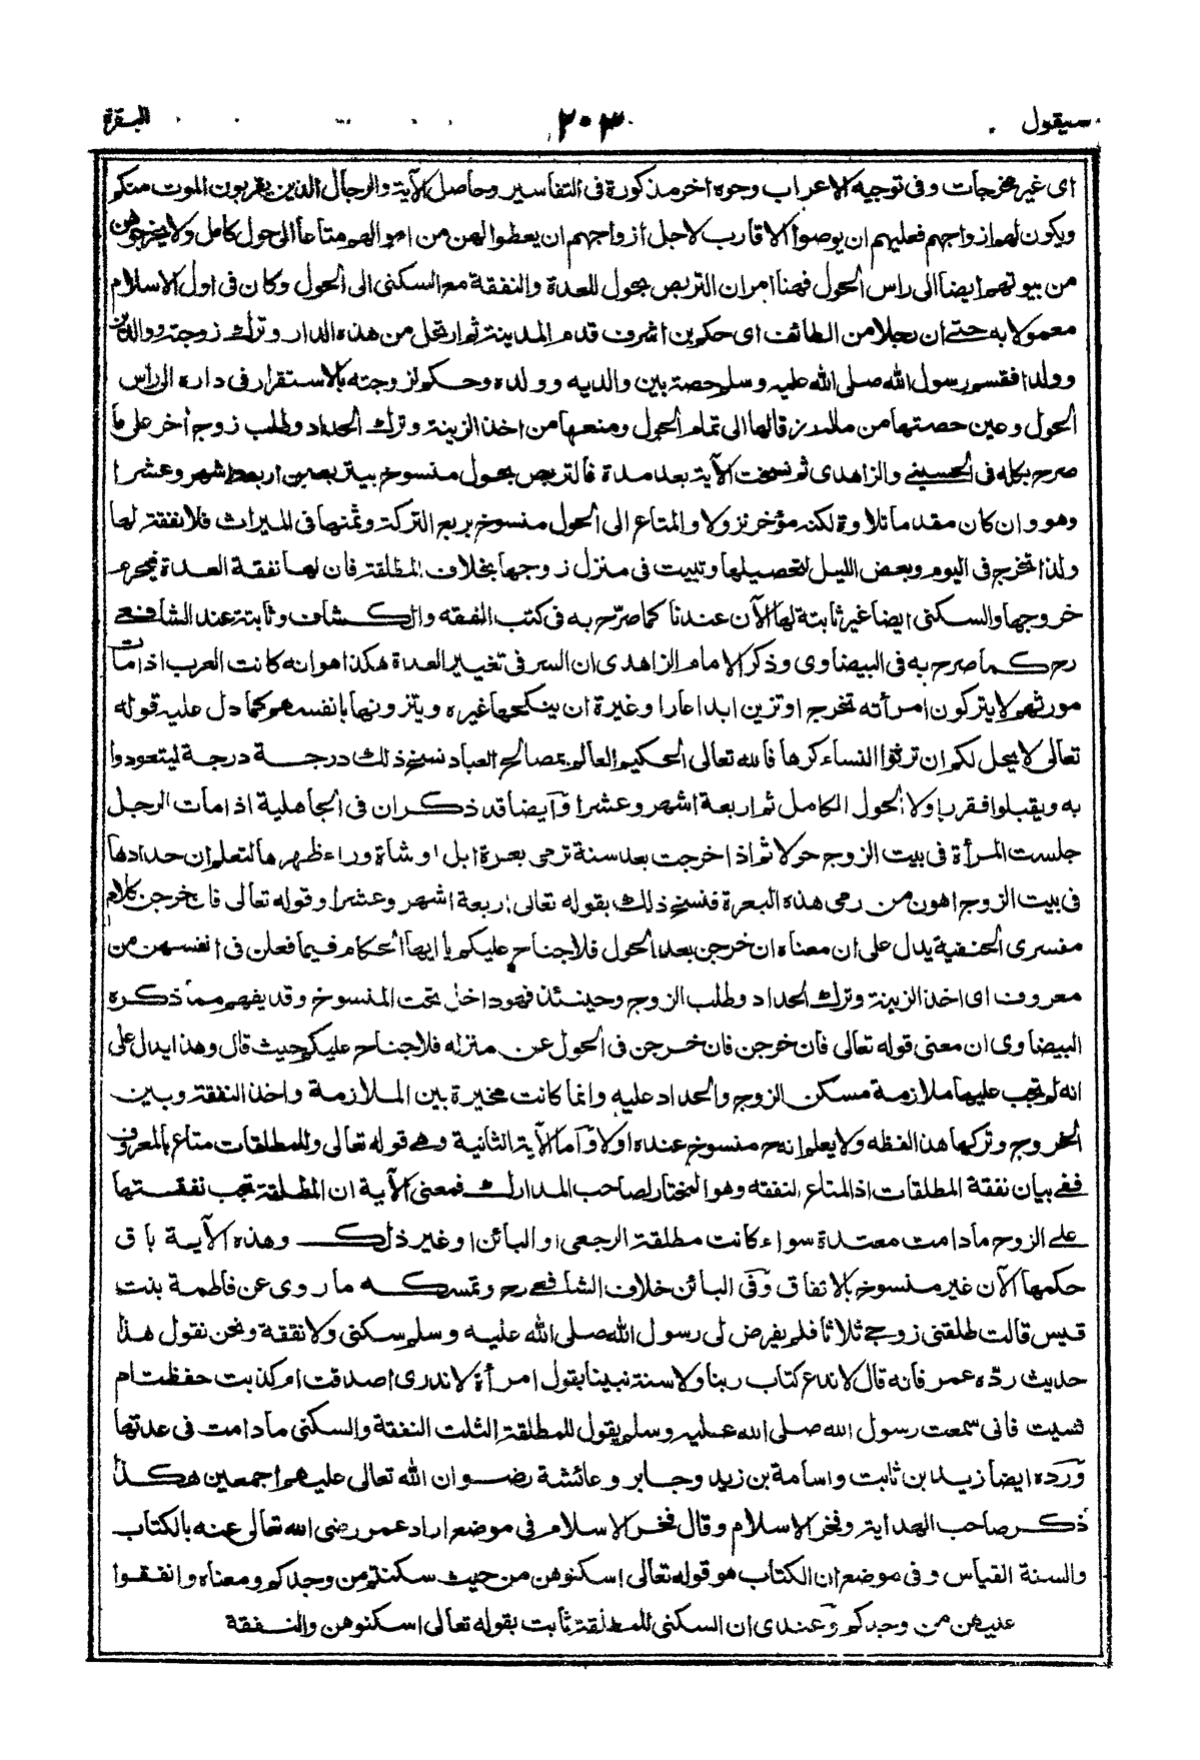 سيقول ٢٠٣ البقرة
اى غير مخرجات وفى توجيه الاعراب وجوه اخر مذكورة فى التفاسير وحاصل الآية والرجال الذين يقربون الموت منكم
ويكون لهم ازواجهم فعليهم ان يوصوا الاقارب لاجل ازواجهم ان يعطوا لهن من اموالهم متاعا الى حول كامل ولا يخرجوهن
من بيوتهم ايضا الى راس الحول فههنا امران التربص بحول للعدة والنفقة مع السكنى الى الحول وكان فى اول الاسلام
معمولا به حتے ان رجلا من الطائف اى حكم بن اشرف قدم المدينة ثم ارتحل من هذه الدار وترك زوجته ووالدين
وولدا فقسم رسول الله صلى الله عليه وسلم حصة بين والديه وولده وحكم لزوجته بالاستقرار فى داره الى راس
الحول وعين حصتها من مال قالها الى تمام الحول ومنعها من اخذ الزينة وترك الحداد وطلب زوج أخر على ما
صرح بكله فى الحسينے والزاهدى ثم نسخت الآية بعد مدة فالتربص بحول منسوخ بيتربصن اربعة اشهر وعشرا
وهو وان كان مقدما تلاوة لكنه مؤخر نزولا والمتاع الى الحول منسوخ بربع التركة وثمنها فى الميراث فلا نفقة لها
ولذا تخرج فى اليوم وبعض الليل لتحصيلها وتبيت فى منزل زوجها بخلاف المطلقة فان لها نفقة العدة فيحرم
خروجها والسكنى ايضا غير ثابتة لها الآن عندنا كما صرّح به فى كتب الفقه والكشاف وثابتة عند الشافعے
رح كما صرح به فى البيضاوى وذكر الامام الزاهدى ان السر فى تغيير العدة هكذا هو انه كانت العرب اذا مات
مورثهم لا يتركون امرأته تخرج او تزين ابدا عارا وغيرة ان ينكحها غيره ويتزونها بانفسهم كما دل عليه قوله
تعالى لا يحل لكم ان ترثوا النساء كرها فالله تعالى الحكيم العالم بمصالح العباد نسخ ذلك درجة درجة ليتعودوا
به ويقبلوا فقرر اولا الحول الكامل ثم اربعة اشهر وعشرا وايضا قد ذكر ان فى الجاهلية اذا مات الرجل
جلست المرأة فى بيت الزوج حولا ثم اذا خرجت بعد سنة ترمى بعرة ابل او شاة وراء ظهرها لتعلم ان حدادها
فى بيت الزوج اهون من رمى هذه البعرة فنسخ ذلك بقوله تعالى اربعة اشهر وعشرا وقوله تعالى فان خرجن كلام
مفسرى الحنفية يدل على ان معناه ان خرجن بعد الحول فلا جناح عليكم يا ايها الحكام فيما فعلن فى انفسهن من
معروف اى اخذ الزينة وترك الحداد وطلب الزوج وحينئذ فهو داخل تحت المنسوخ وقد يفهم مما ذكره
البيضاوى ان معنى قوله تعالى فان خرجن فان خرجن فى الحول عن منزله فلا جناح عليكم حيث قال وهذا يدل على
انه لم تجب عليها ملازمة مسكن الزوج والحداد عليه وانما كانت مخيرة بين الملازمة واخذ النفقة وبين
الخروج وتركها هذا لفظه ولا يعلم انه ح منسوخ عنده اولا واما الآية الثانية وهے قوله تعالى وللمطلقات متاع بالمعروف
ففے بيان نفقة المطلقات اذ المتاع النفقه وهو المختار لصاحب المدارك فمعنى الآية ان المطلقة تجب نفقتها
علے الزوج مادامت معتدة سواء كانت مطلقة الرجعى او البائن او غير ذلك وهذه الآية باق
حكمها الآن غير منسوخ بالاتفاق وفى البائن خلاف الشافعے رح وتمسكه ما روى عن فاطمة بنت
قيس قالت طلقنى زوجے ثلاثا فلم يفرض لى رسول الله صلى الله عليه وسلم سكنى ولا نفقة ونحن نقول هذا
حديث ردّه عمر فانه قال لا ندع كتاب ربنا ولا سنة نبينا بقول امرأة لا ندرى اصدقت ام كذبت حفظت ام
نسيت فانى سمعت رسول الله صلى الله عليه وسلم يقول للمطلقة الثلث النفقة والسكنى مادامت فى عدتها
ورده ايضا زيد بن ثابت واسامة بن زيد وجابر وعائشة رضوان الله تعالى عليهم اجمعين هكذا
ذكر صاحب الهداية وفخر الاسلام وقال فخر الاسلام فى موضع اراد عمر رضى الله تعالى عنه بالكتاب
والسنة القياس وفى موضع ان الكتاب هو قوله تعالى اسكنوهن من حيث سكنتم من وجدكم ومعناه وانفقوا
عليهن من وجدكم وعندى ان السكنى للمطلقة ثابت بقوله تعالى اسكنوهن والنفقة